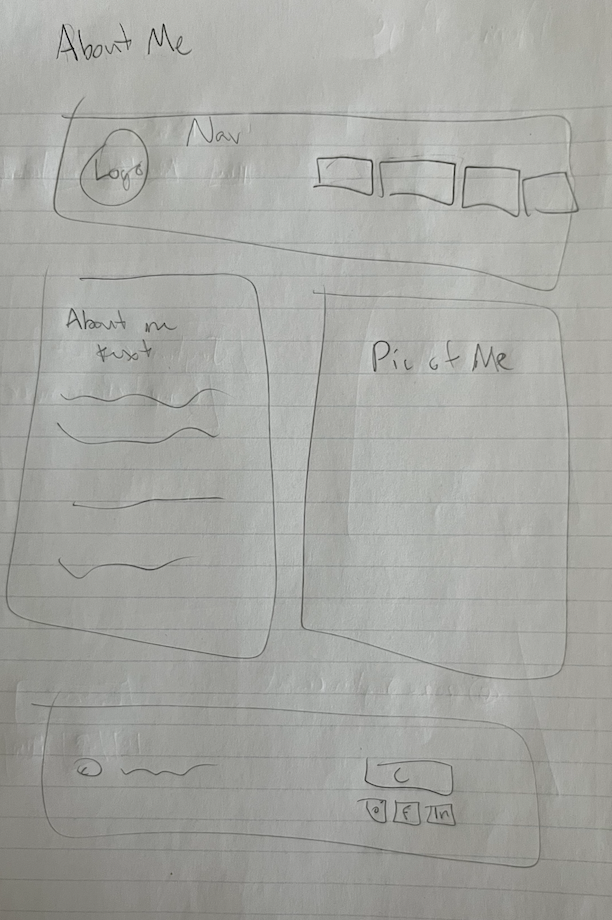 About Me
Nav
Logo
About me
text
Pic of Me
C
F In